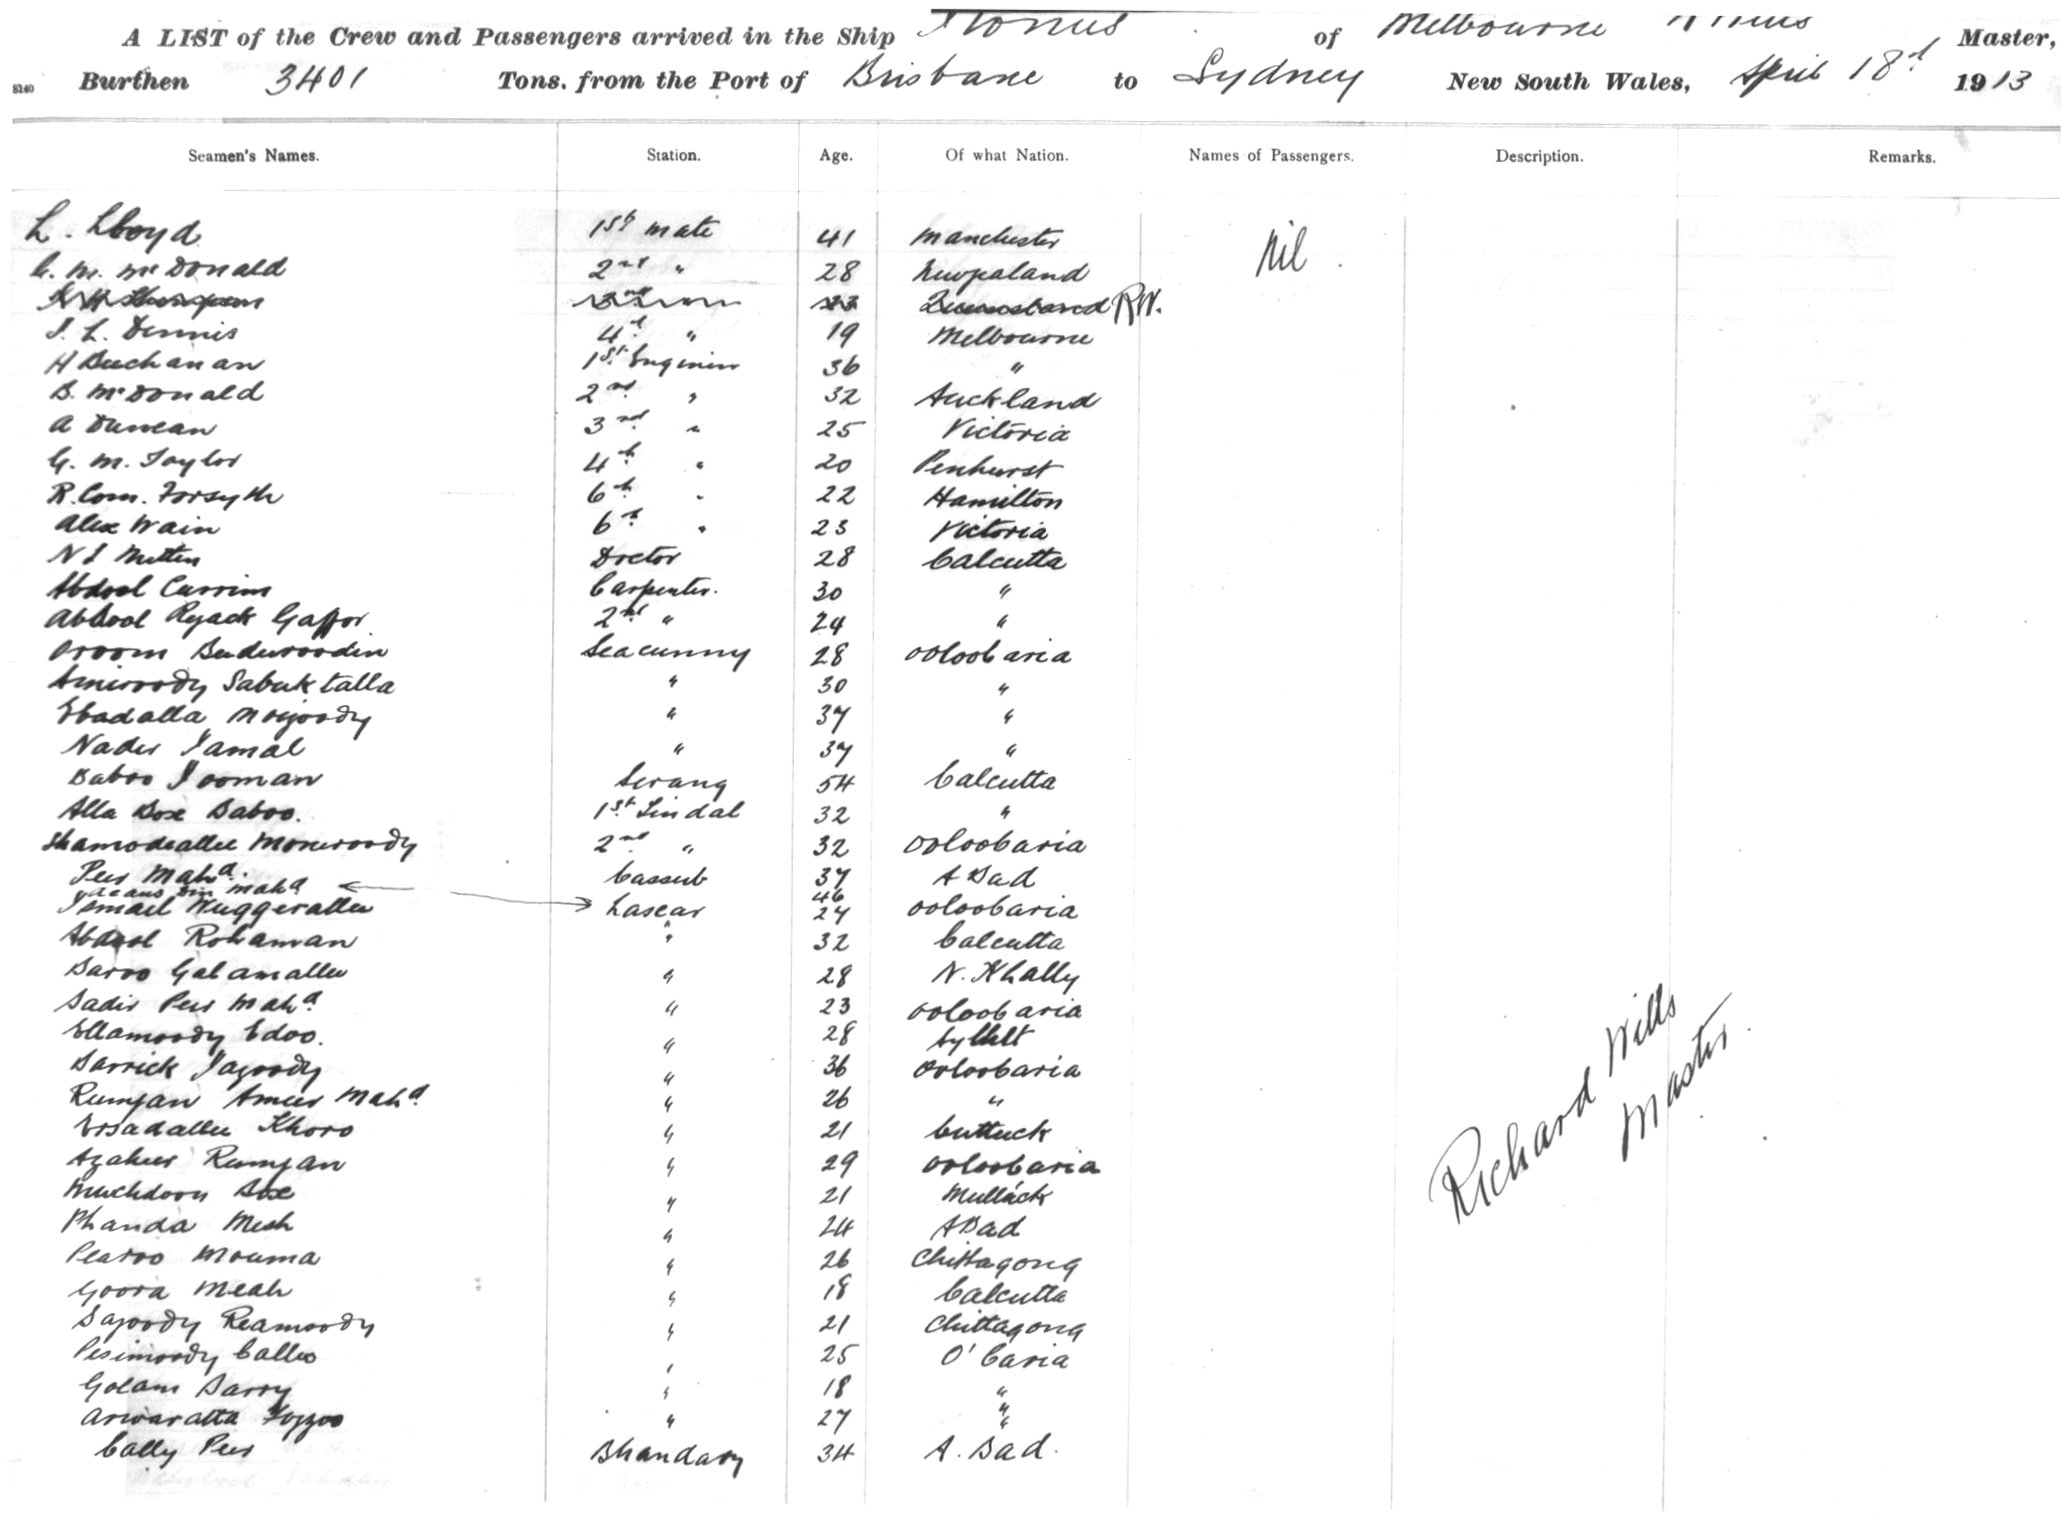 A LIST of the Crew and Passengers arrived in the Ship of Melbourne Master,
S140 Burthen 3401 Tons. from the Port of Brisbane to Sydney New South Wales, April 18th 1913
Seamen's Names. Station. Age. Of what Nation. Names of Passengers. Description. Remarks.
L. Lloyd 1st mate 41 Manchester Nil
G. M. McDonald 2nd " 28 Newzealand
3rd 23 Queensland R.W.
J. L. Dennis 4th " 19 Melbourne
H Buchanan 1st Engineer 36 "
B. McDonald 2nd " 32 Auckland
A Duncan 3rd " 25 Victoria
G. M. Taylor 4th " 20 Penhurst
R. Com. Forsyth 6th " 22 Hamilton
Alex Wain 6th " 23 Victoria
N I Mitten Doctor 28 Calcutta
Abdool Currim Carpenter. 30 "
Abdool Ryack Gaffor 2nd " 24 "
Oroom Buduroodin Seacunny 28 Ooloobaria
Ameeroody Sabuktalla " 30 "
Ebadalla Moijoody " 37 "
Nader Jamal " 37 "
Baboo Jooman Serang 54 Calcutta
Alla Box Baboo. 1st Tindal 32 "
Shamodeallee Moneroody 2nd " 32 Ooloobaria
Peer Mahd. Cassub 37 A Bad
Din Mahd 46
Ismail Nuggerallee Lascar 27 Ooloobaria
Abdool Rohaman " 32 Calcutta
Baroo Golamallee " 28 N. Khally
Sadir Peer Mahd " 23 Ooloobaria
Ellamoody Edoo. " 28 Sylhet
Barrick Jagoody " 36 Ooloobaria
Rumjan Ameer Mahd " 26 "
Ersadallee Khoro " 21 Cuttuck
Azaheer Rumjan " 29 Ooloobaria
Muchdoon Box " 21 Mullack
Phanda Mesh " 24 A Bad
Pearoo Mouma " 26 Chittagong
Goora Meah " 18 Calcutta
Sajoody Reamoody " 21 Chittagong
Pesimoody Callee " 25 O'Baria
Golam Barry " 18 "
Arwaratta Fozzoo " 27 "
Cally Peer Bhandary 34 A. Bad.
Richard Wills
Master